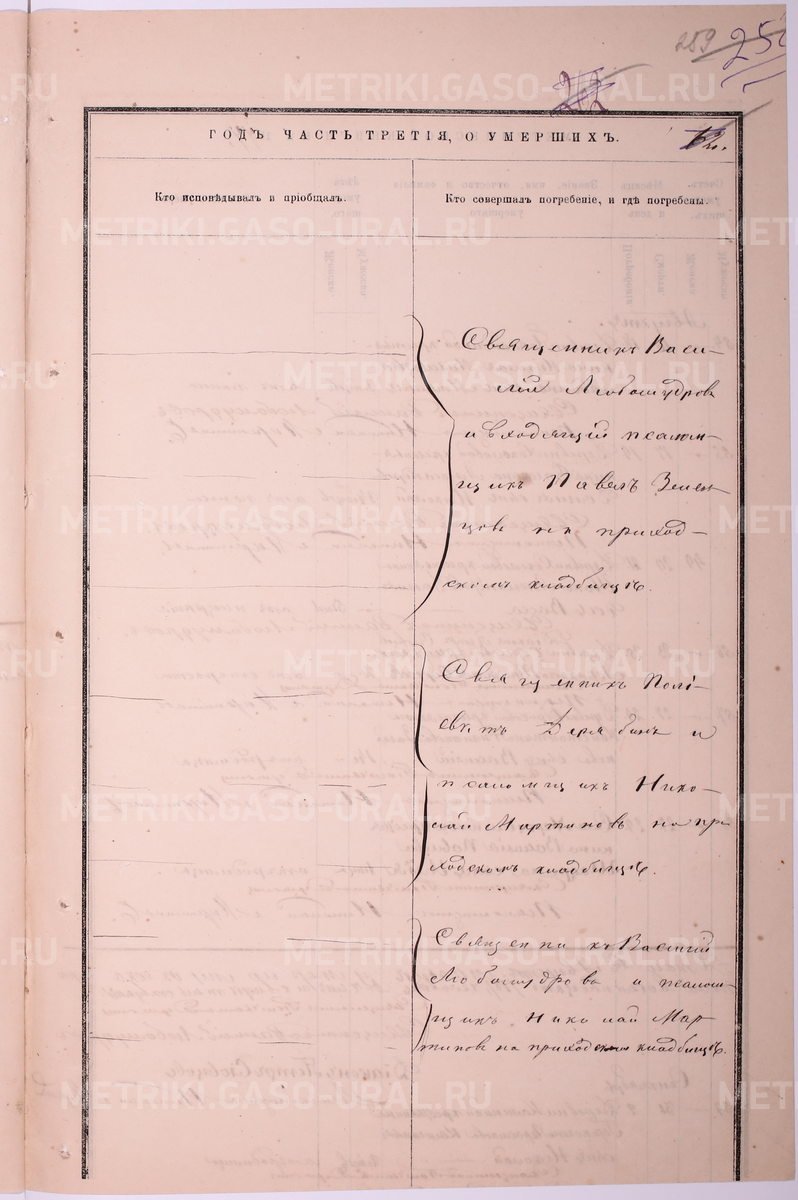 289
ГОДЪ ЧАСТЬ ТРЕТІЯ, О УМЕРШИХЪ.
Кто исповѣдывалъ и пріобщалъ.
Кто совершалъ погребеніе, и гдѣ погребены.
Священникъ Васи-
лій Любомудровъ
и входящій псалом-
щикъ Павелъ
на приход-
скомъ кладбищѣ.
Священникъ Полі-
евктъ Дерябинъ и
псаломщикъ Нико-
лай Мартиновъ на при
ходскомъ кладбищѣ.
Священникъ Василій
Любомудровъ и псалом-
щикъ Николай Мар-
тиновъ на приходскомъ кладбищѣ.
METRIKI.GASO-URAL.RU